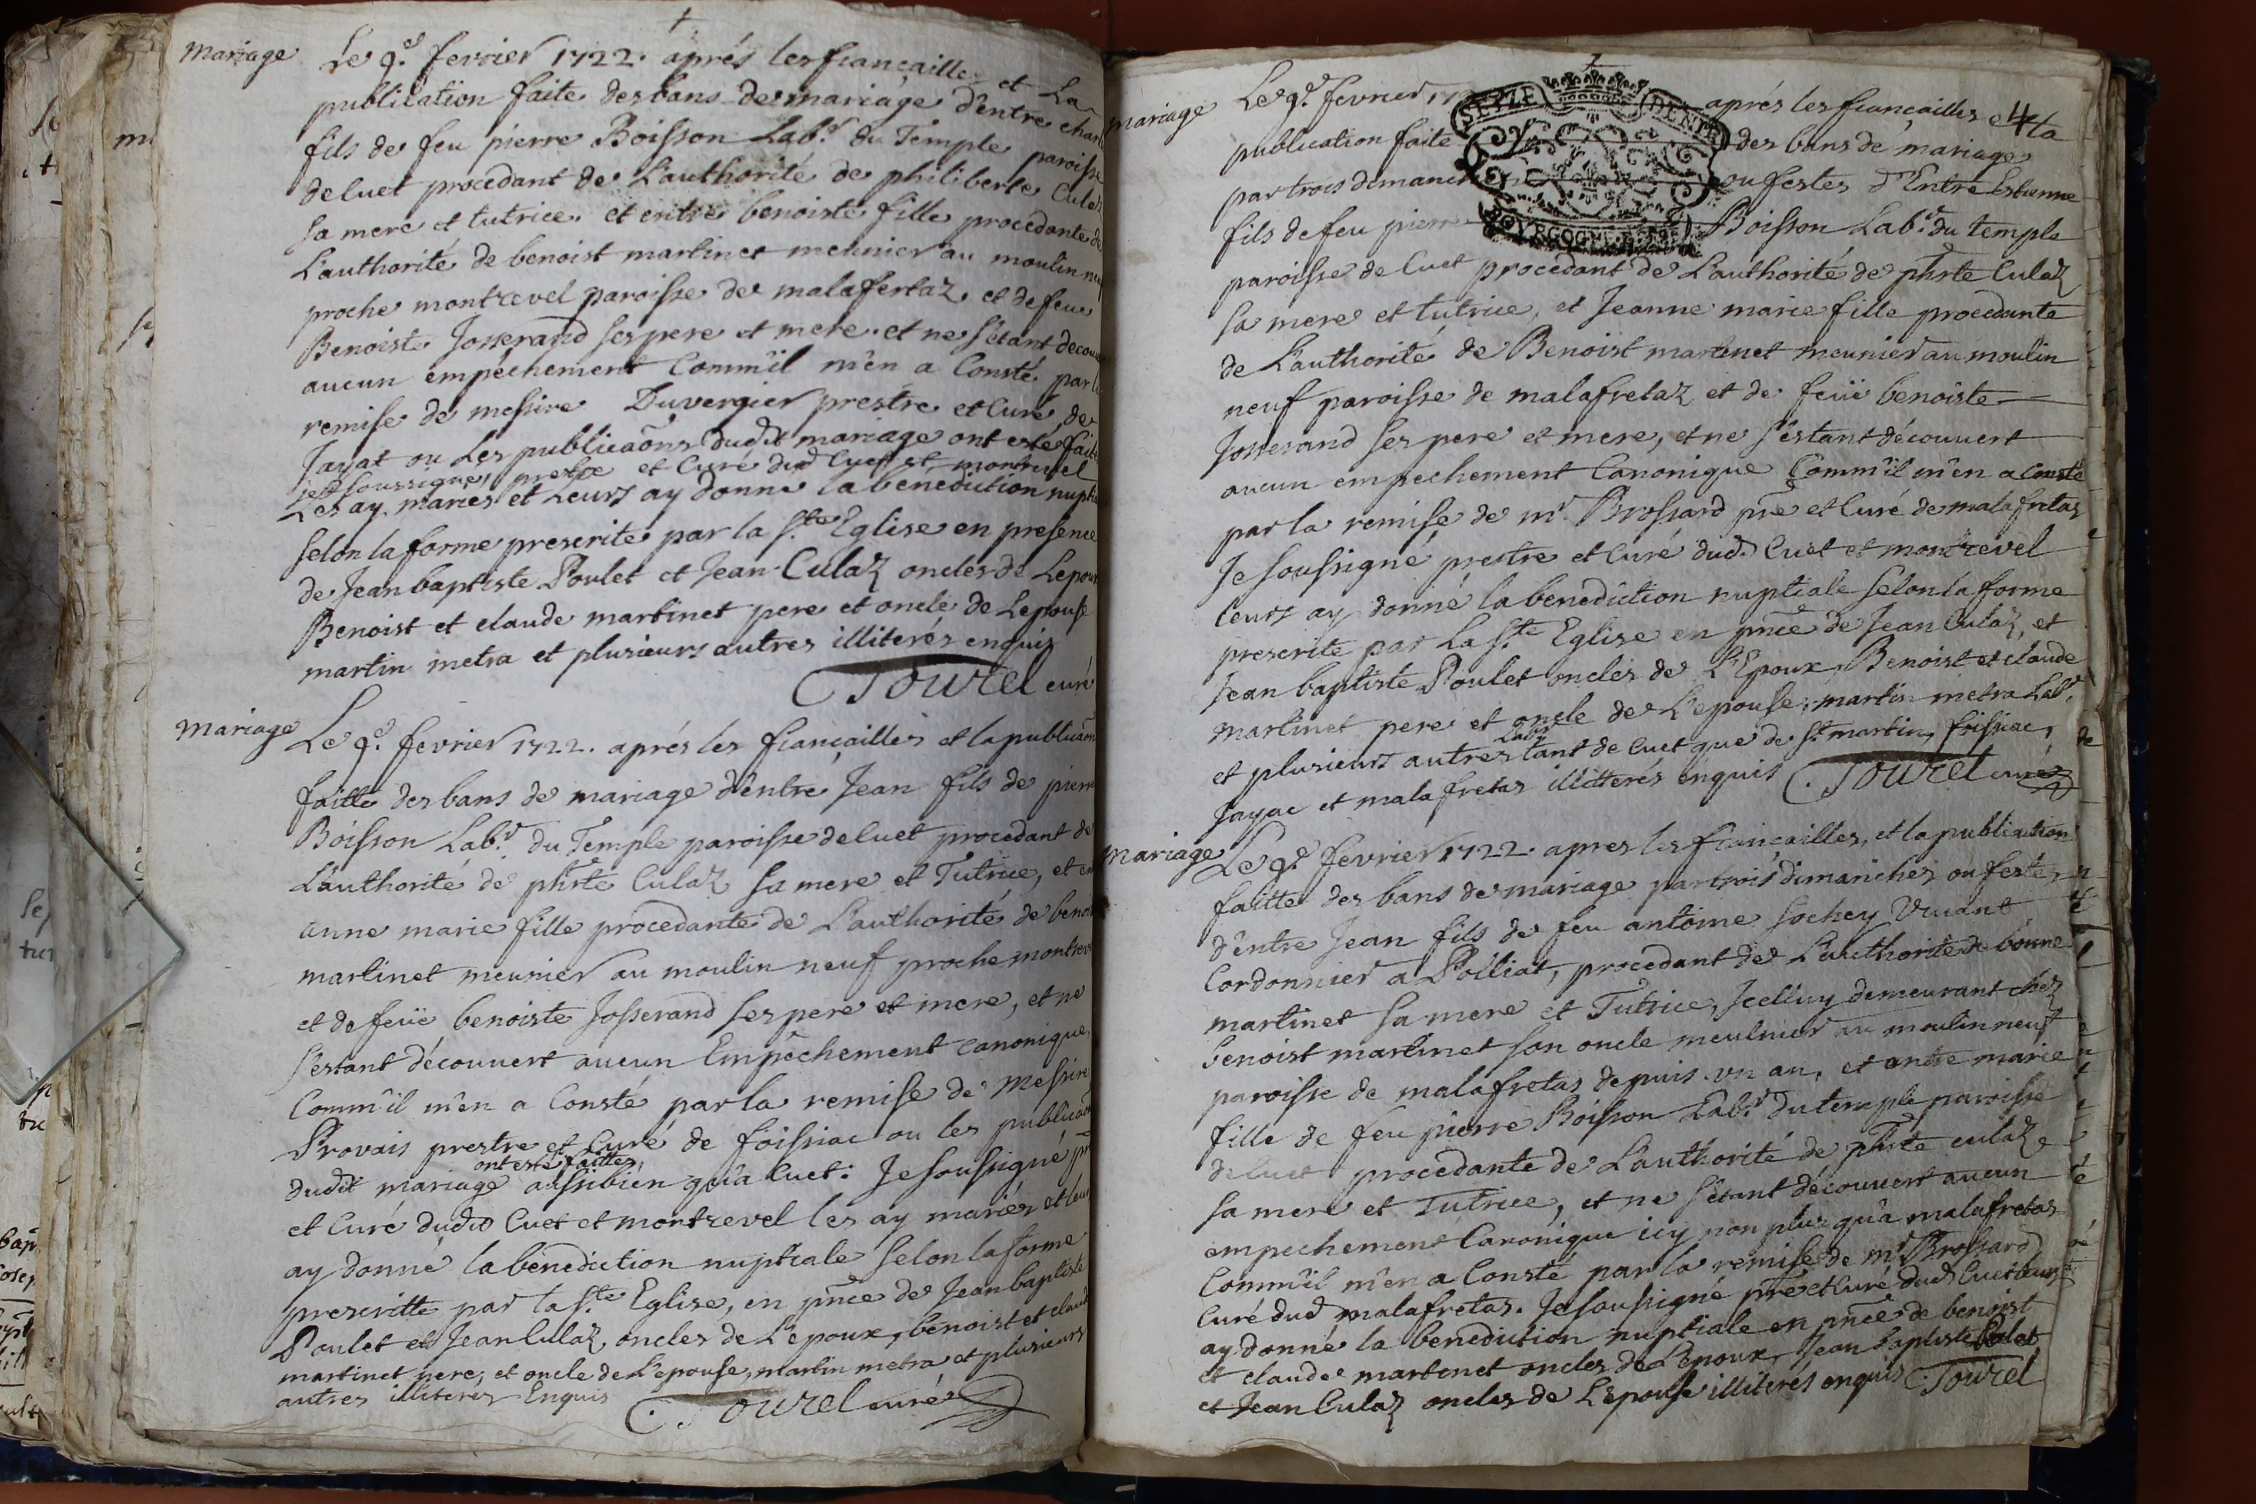 Mariage
Le 9.e fevrier 1722. aprés les fiancailles et La
publication faite des bans de mariage d'entre Char
fils de feu pierre Boisson Lab.r du Temple paroisse
de Cuet procedant de L'authorité de philiberte Culaz
sa mere et tutrice. et entre benoiste fille procedante de
L'authorité de benoist martinet meunier au moulin neuf
proche montrevel paroisse de malafertaz et de feue
Benoiste Josserand ses pere et mere. et ne s'étant decou
aucun empéchement Comm'il m'en a Consté par la
remise de messire Duvergier prestre et Curé de
Jayat ou Les publicaõns dudit mariage ont esté fait
je soussigné, prestre et Curé dud Cuet et montrevel
Les ay mariés et Leurs ay donné la benediction nupti
selon la forme prescrite par la S.te Eglise en presence
de Jean baptiste Poulet et Jean Culaz oncles de Lepoux
Benoist et claude martinet pere et oncle de Lepouse
martin metra et plusieurs autres illiterés enquis
Tourel curé
Mariage
Le 9.e fevrier 1722. aprés les fiancailles et la publicaõn
faitte des bans de mariage d'entre Jean fils de pierre
Boisson Lab.r du Temple paroisse de Cuet procedant de
L'authorité de phrte Culaz sa mere et Tutrice, et en
anne marie fille procedante de L'authorité de benoi
martinet meunier au moulin neuf proche montrev
et de feüe benoiste Josserand ses pere et mere, et ne
s'estant découvert aucun Empêchement canonique
Comm'il m'en a Consté par la remise de Messire
Provais prestre et Curé de foissiac ou les publicaõn
ont esté faittes
dudit mariage aussibien qu'a Cuet: Je soussigné pr
et Curé dudit Cuet et montrevel les ay mariés et leur
ay donné la benediction nuptiale selon la forme
prescritte par la S.te Eglise, en pnce de Jean baptiste
Poulet et Jean Culaz oncles de L'epoux, benoist et claud
martinet pere, et oncle de L'epouse, martin metra et plusieurs
autres illiteres Enquis Tourel curé
4
Mariage
Le 9.e fevrier 17 aprés les fiancailles et la
SEIZE DENI
publication faite des bans de mariage
par trois dimanch ou festes d'Entre Estienne
fils de feu pierre Boisson Lab.r du temple
BOVRGOGNE
paroisse de Cuet procedant de L'authorité de phrte Culaz
sa mere et tutrice, et Jeanne marie fille procedante
de L'authorité de Benoist martinet meunier au moulin
neuf paroisse de malafretaz et de feüe benoiste
Josserand ses pere et mere, et ne s'estant découvert
aucun empechement Canonique Comm'il m'en a Consté
par la remise de m.r Brossard pre et Curé de malafretaz
Je soussigné prestre et Curé dud. Cuet et montrevel
leurs ay donné la benediction nuptiale selon la forme
prescrite par La S.te Eglise en pnce de Jean Culaz, et
Jean baptiste Poulet oncles de L'Epoux, Benoist et claude
martinet pere et oncle de L'epouse, martin metra Lab.r
Labrs
et plusieurs autres tant de Cuet que de S.t martin, foissiac,
Jayac et malafretas illitterés enquis Tourel curé
Mariage
Le 9.e fevrier 1722. apres les fiancailles, et la publication
faitte des bans de mariage par trois dimanches ou festes
d'entre Jean fils de feu antoine Sochey Vivant
Cordonnier a Polliat, procedant de L'authorité de bonne
martinet sa mere et Tutrice, Jceluy demeurant chez
benoist martinet son oncle meulnier au moulin neuf
paroisse de malafretas depuis un an, et entre marie
fille de feu pierre Boisson Lab.r du temple paroisse
de Cuet procedante de L'authorité de phrte culaz
sa mere et Tutrice, et ne s'étant découvert aucun
empechement Canonique icy non plus qu'a malafretas
Comm'il m'en a Consté par la remise de m.r Brossard
Curé dud malafretas. Je soussigné pre et Curé dud Cuet leurs
ay donné la benediction nuptiale en pnce de benoist
et claude martinet oncles de L'epoux, Jean baptiste Polet
et Jean Culaz oncles de L'epouse illiterés enquis Tourel